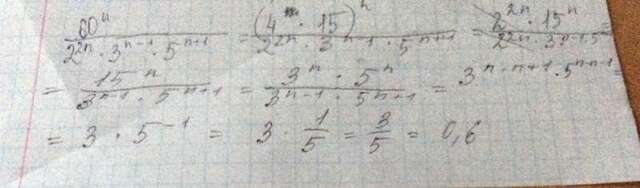 60ⁿ / (2²ⁿ · 3ⁿ⁻¹ · 5ⁿ⁺¹) = (4 · 15)ⁿ / (2²ⁿ · 3ⁿ⁻¹ · 5ⁿ⁺¹) = 2²ⁿ · 15ⁿ / (2²ⁿ · 3ⁿ⁻¹ · 5
= 15ⁿ / (3ⁿ⁻¹ · 5ⁿ⁺¹) = 3ⁿ · 5ⁿ / (3ⁿ⁻¹ · 5ⁿ⁺¹) = 3ⁿ⁻ⁿ⁺¹ · 5ⁿ⁻ⁿ⁻¹ =
= 3 · 5⁻¹ = 3 · 1/5 = 3/5 = 0,6